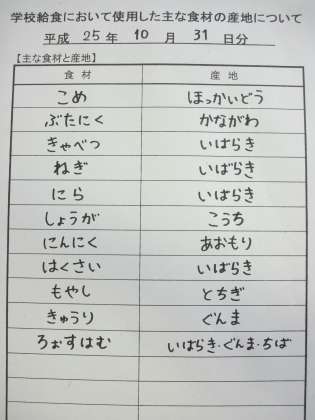 学校給食において使用した主な食材の産地について
平成 25 年 10 月 31 日分
【主な食材と産地】
食材 産地
こめ ほっかいどう
ぶたにく かながわ
きゃべつ いばらき
ねぎ いばらき
にら いばらき
しょうが こうち
にんにく あおもり
はくさい いばらき
もやし とちぎ
きゅうり ぐんま
ろぉすはむ いはらき・ぐんま・ちば